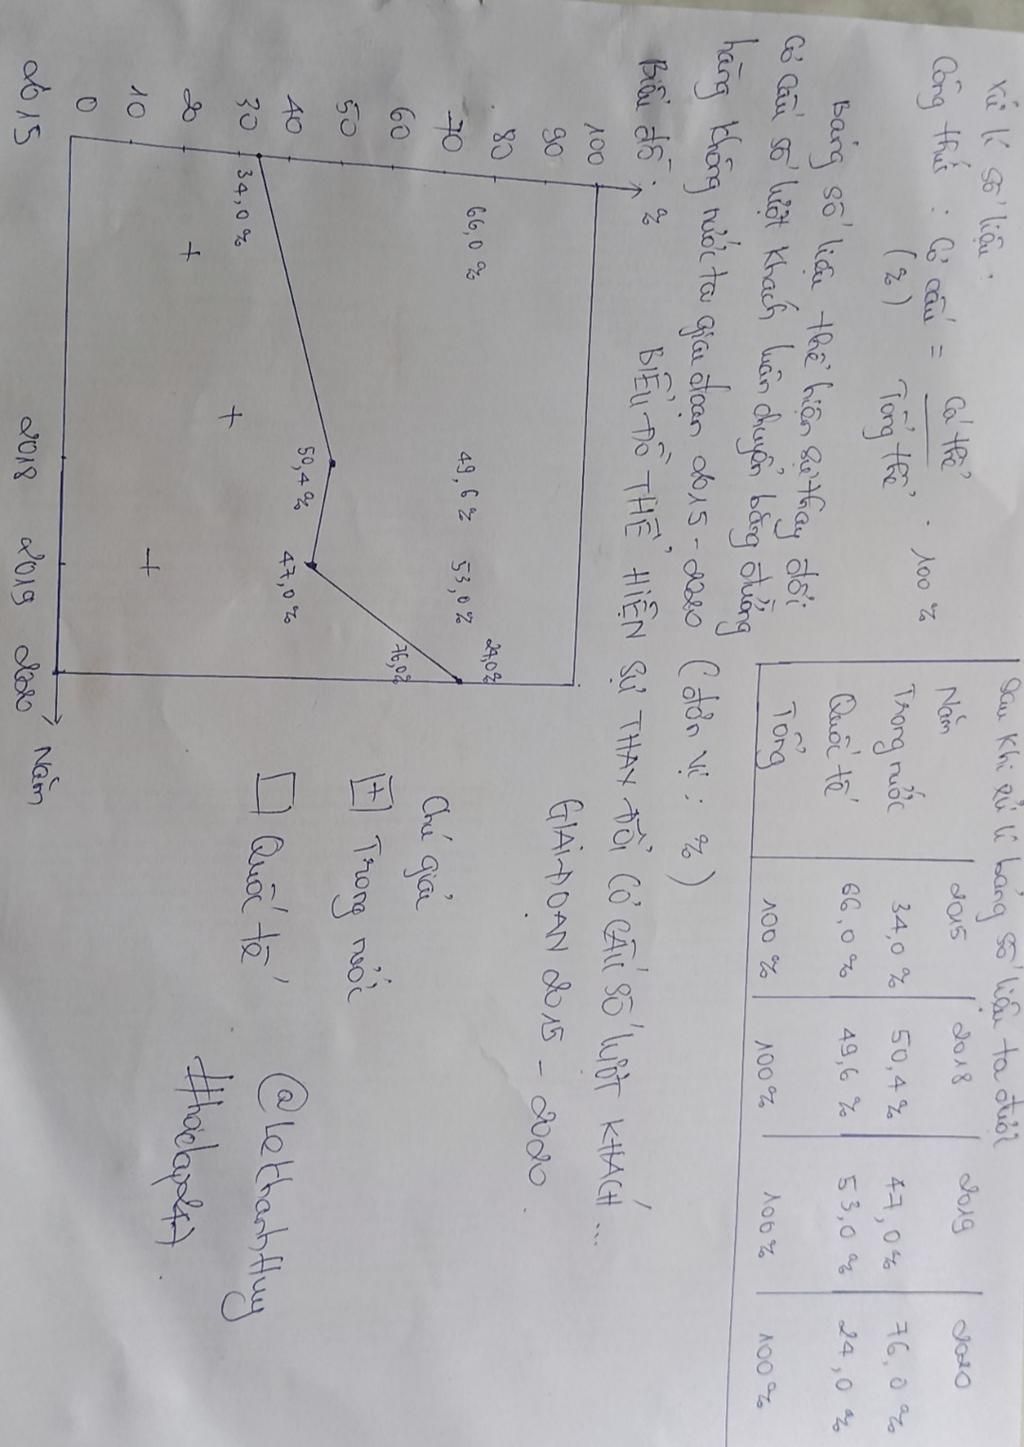 Xử lí số liệu:
Công thức : Cơ cấu = Cá thể / Tổng thể . 100 %
(%)
Bảng số liệu thể hiện sự thay đổi
cơ cấu số lượt khách luân chuyển bằng đường
hàng không nước ta giai đoạn 2015 - 2020 (đơn vị : %)
Sau khi xử lí bảng số liệu ta được
Năm 2015 2018 2019 2020
Trong nước 34,0 % 50,4 % 47,0 % 76,0 %
Quốc tế 66,0 % 49,6 % 53,0 % 24,0 %
Tổng 100 % 100 % 100 % 100 %
Biểu đồ:
BIỂU ĐỒ THỂ HIỆN SỰ THAY ĐỔI CƠ CẤU SỐ LƯỢT KHÁCH ...
GIAI ĐOẠN 2015 - 2020.
%
100
90
80
70
60
50
40
30
20
10
0
66,0 % 49,6 % 53,0 % 24,0%
34,0 % 50,4 % 47,0 % 76,0%
2015 2018 2019 2020 Năm
Chú giải
+ Trong nước
Quốc tế
@LeKhanhHuy
#hoclap247